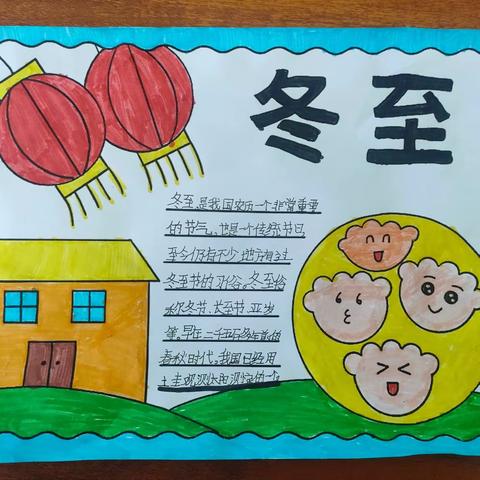 冬至
冬至,是我国农历一个非常重要
的节气,也是个传统节日,
至今仍有不少地方有过
冬至节的习俗。冬至俗
称冬节、长至节、亚岁
等。早在二千五百多年前的
春秋时代,我国已经用
土圭观测太阳测定出一个